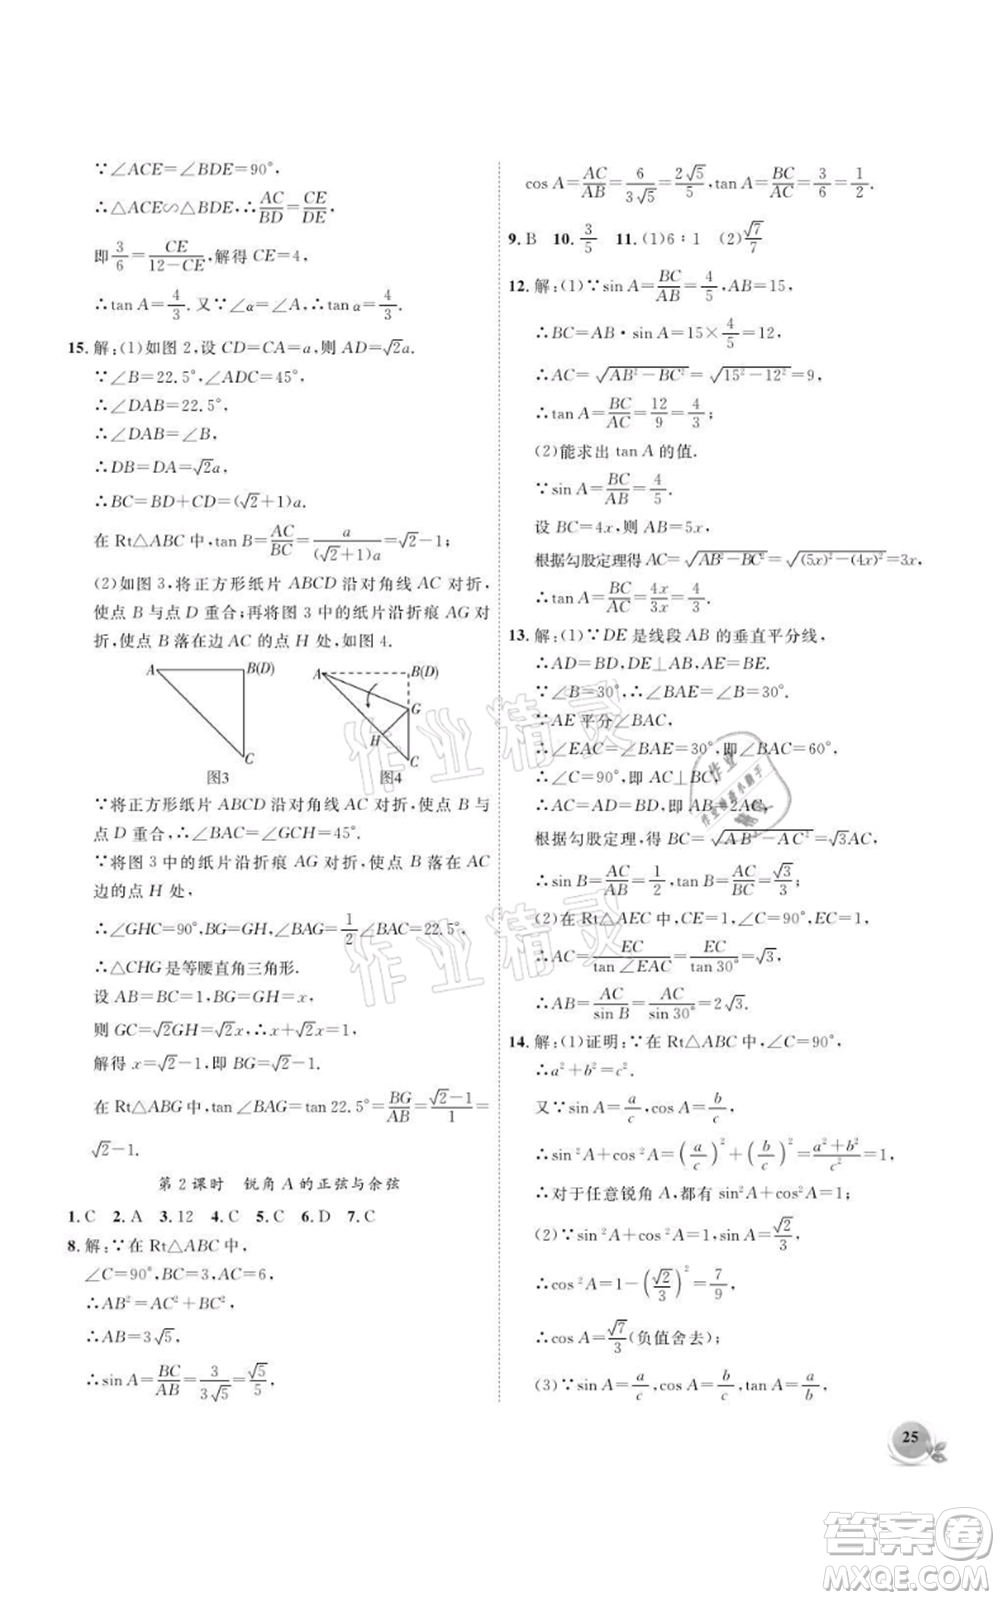 ∵∠ACE=∠BDE=90°,
∴△ACE∽△BDE,∴AC/BD=CE/DE,
即3/6=CE/(12-CE),解得 CE=4,
∴tan A=4/3.又∵∠α=∠A,∴tan α=4/3.
15.解:(1)如图 2,设 CD=CA=a,则 AD=√2a.
∵∠B=22.5°,∠ADC=45°,
∴∠DAB=22.5°,
∴∠DAB=∠B,
∴DB=DA=√2a,
∴BC=BD+CD=(√2+1)a.
在 Rt△ABC 中,tan B=AC/BC=a/((√2+1)a)=√2-1;
(2)如图 3,将正方形纸片 ABCD 沿对角线 AC 对折,
使点 B 与点 D 重合;再将图 3 中的纸片沿折痕 AG 对
折,使点 B 落在边 AC 的点 H 处,如图 4.
A B(D) C
图3
A B(D) G H C
图4
∵将正方形纸片 ABCD 沿对角线 AC 对折,使点 B 与
点 D 重合,∴∠BAC=∠GCH=45°.
∵将图 3 中的纸片沿折痕 AG 对折,使点 B 落在 AC
边的点 H 处,
∴∠GHC=90°,BG=GH,∠BAG=1/2∠BAC=22.5°,
∴△CHG是等腰直角三角形.
设 AB=BC=1,BG=GH=x,
则 GC=√2GH=√2x,∴x+√2x=1,
解得 x=√2-1,即 BG=√2-1.
在 Rt△ABG 中,tan∠BAG=tan 22.5°=BG/AB=(√2-1)/1=
√2-1.
第 2 课时 锐角 A 的正弦与余弦
1.C 2.A 3.12 4.C 5.C 6.D 7.C
8.解:∵在 Rt△ABC 中,
∠C=90°,BC=3,AC=6,
∴AB²=AC²+BC²,
∴AB=3√5,
∴sin A=BC/AB=3/(3√5)=√5/5,
cos A=AC/AB=6/(3√5)=2√5/5,tan A=BC/AC=3/6=1/2.
9.B 10.3/5 11.(1)6∶1 (2)√7/7
12.解:(1)∵sin A=BC/AB=4/5,AB=15,
∴BC=AB·sin A=15×4/5=12,
∴AC=√(AB²-BC²)=√(15²-12²)=9,
∴tan A=BC/AC=12/9=4/3;
(2)能求出 tan A 的值.
∵sin A=BC/AB=4/5.
设 BC=4x,则 AB=5x,
根据勾股定理得 AC=√(AB²-BC²)=√((5x)²-(4x)²)=3x,
∴tan A=BC/AC=4x/3x=4/3.
13.解:(1)∵DE 是线段 AB 的垂直平分线,
∴AD=BD,DE⊥AB,AE=BE.
∵∠B=30°,∴∠BAE=∠B=30°.
∵AE 平分∠BAC,
∴∠EAC=∠BAE=30°,即∠BAC=60°,
∴∠C=90°,即 AC⊥BC,
∴AC=AD=BD,即 AB=2AC,
根据勾股定理,得 BC=√(AB²-AC²)=√3AC,
∴sin B=AC/AB=1/2,tan B=AC/BC=√3/3;
(2)在 Rt△AEC 中,CE=1,∠C=90°,EC=1,
∴AC=EC/tan∠EAC=EC/tan 30°=√3,
∴AB=AC/sin B=AC/sin 30°=2√3.
14.解:(1)证明:∵在 Rt△ABC 中,∠C=90°,
∴a²+b²=c².
又∵sin A=a/c,cos A=b/c,
∴sin²A+cos²A=(a/c)²+(b/c)²=(a²+b²)/c²=1,
∴对于任意锐角 A,都有 sin²A+cos²A=1;
(2)∵sin²A+cos²A=1,sin A=√2/3,
∴cos²A=1-(√2/3)²=7/9,
∴cos A=√7/3(负值舍去);
(3)∵sin A=a/c,cos A=b/c,tan A=a/b,
25
作业精灵
作业精灵
答案卷
MXQE.COM